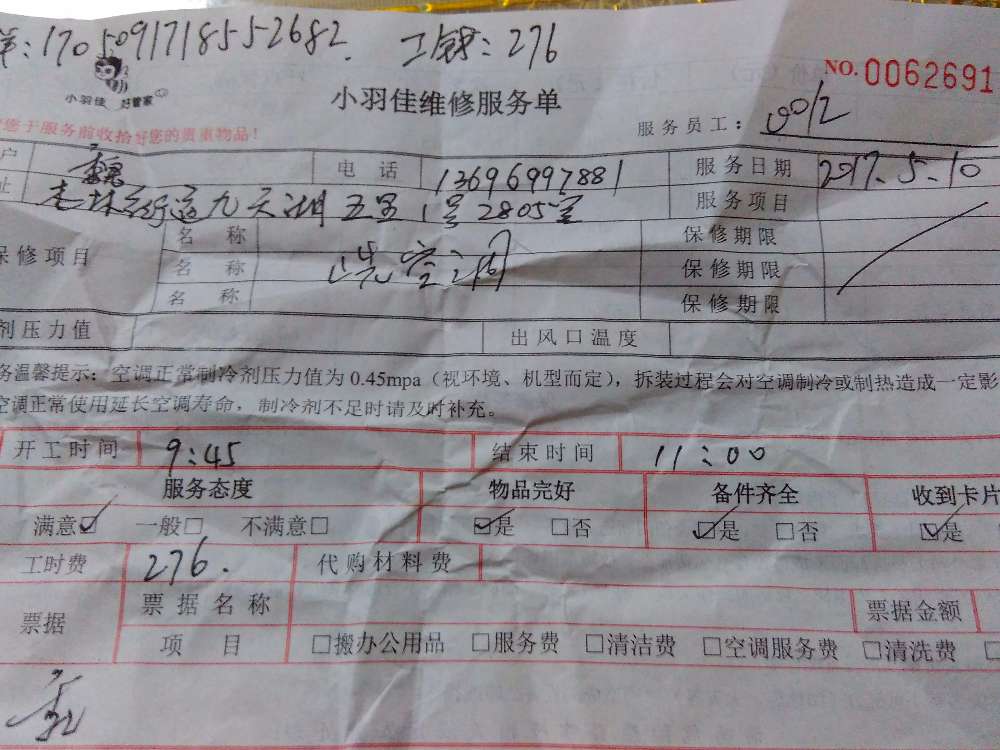 单:1705091718552682. 工钱:276
小羽佳 好管家
NO. 0062691
小羽佳维修服务单
您于服务前收拾好您的贵重物品!
服务员工: 0012
户 电话 13696997881 服务日期 2017.5.10
址 九天湖五里1号2805室 服务项目
保修项目 名称 洗空调 保修期限
名称 保修期限
名称 保修期限
剂压力值 出风口温度
务温馨提示:空调正常制冷剂压力值为0.45mpa(视环境、机型而定),拆装过程会对空调制冷或制热造成一定影
空调正常使用延长空调寿命,制冷剂不足时请及时补充。
开工时间 9:45 结束时间 11:00
服务态度 物品完好 备件齐全 收到卡片
满意☑ 一般□ 不满意□ ☑是 □否 ☑是 □否 ☑是
工时费 276. 代购材料费
票据 票据名称 票据金额
项目 □搬办公用品 □服务费 □清洁费 □空调服务费 □清洗费 □